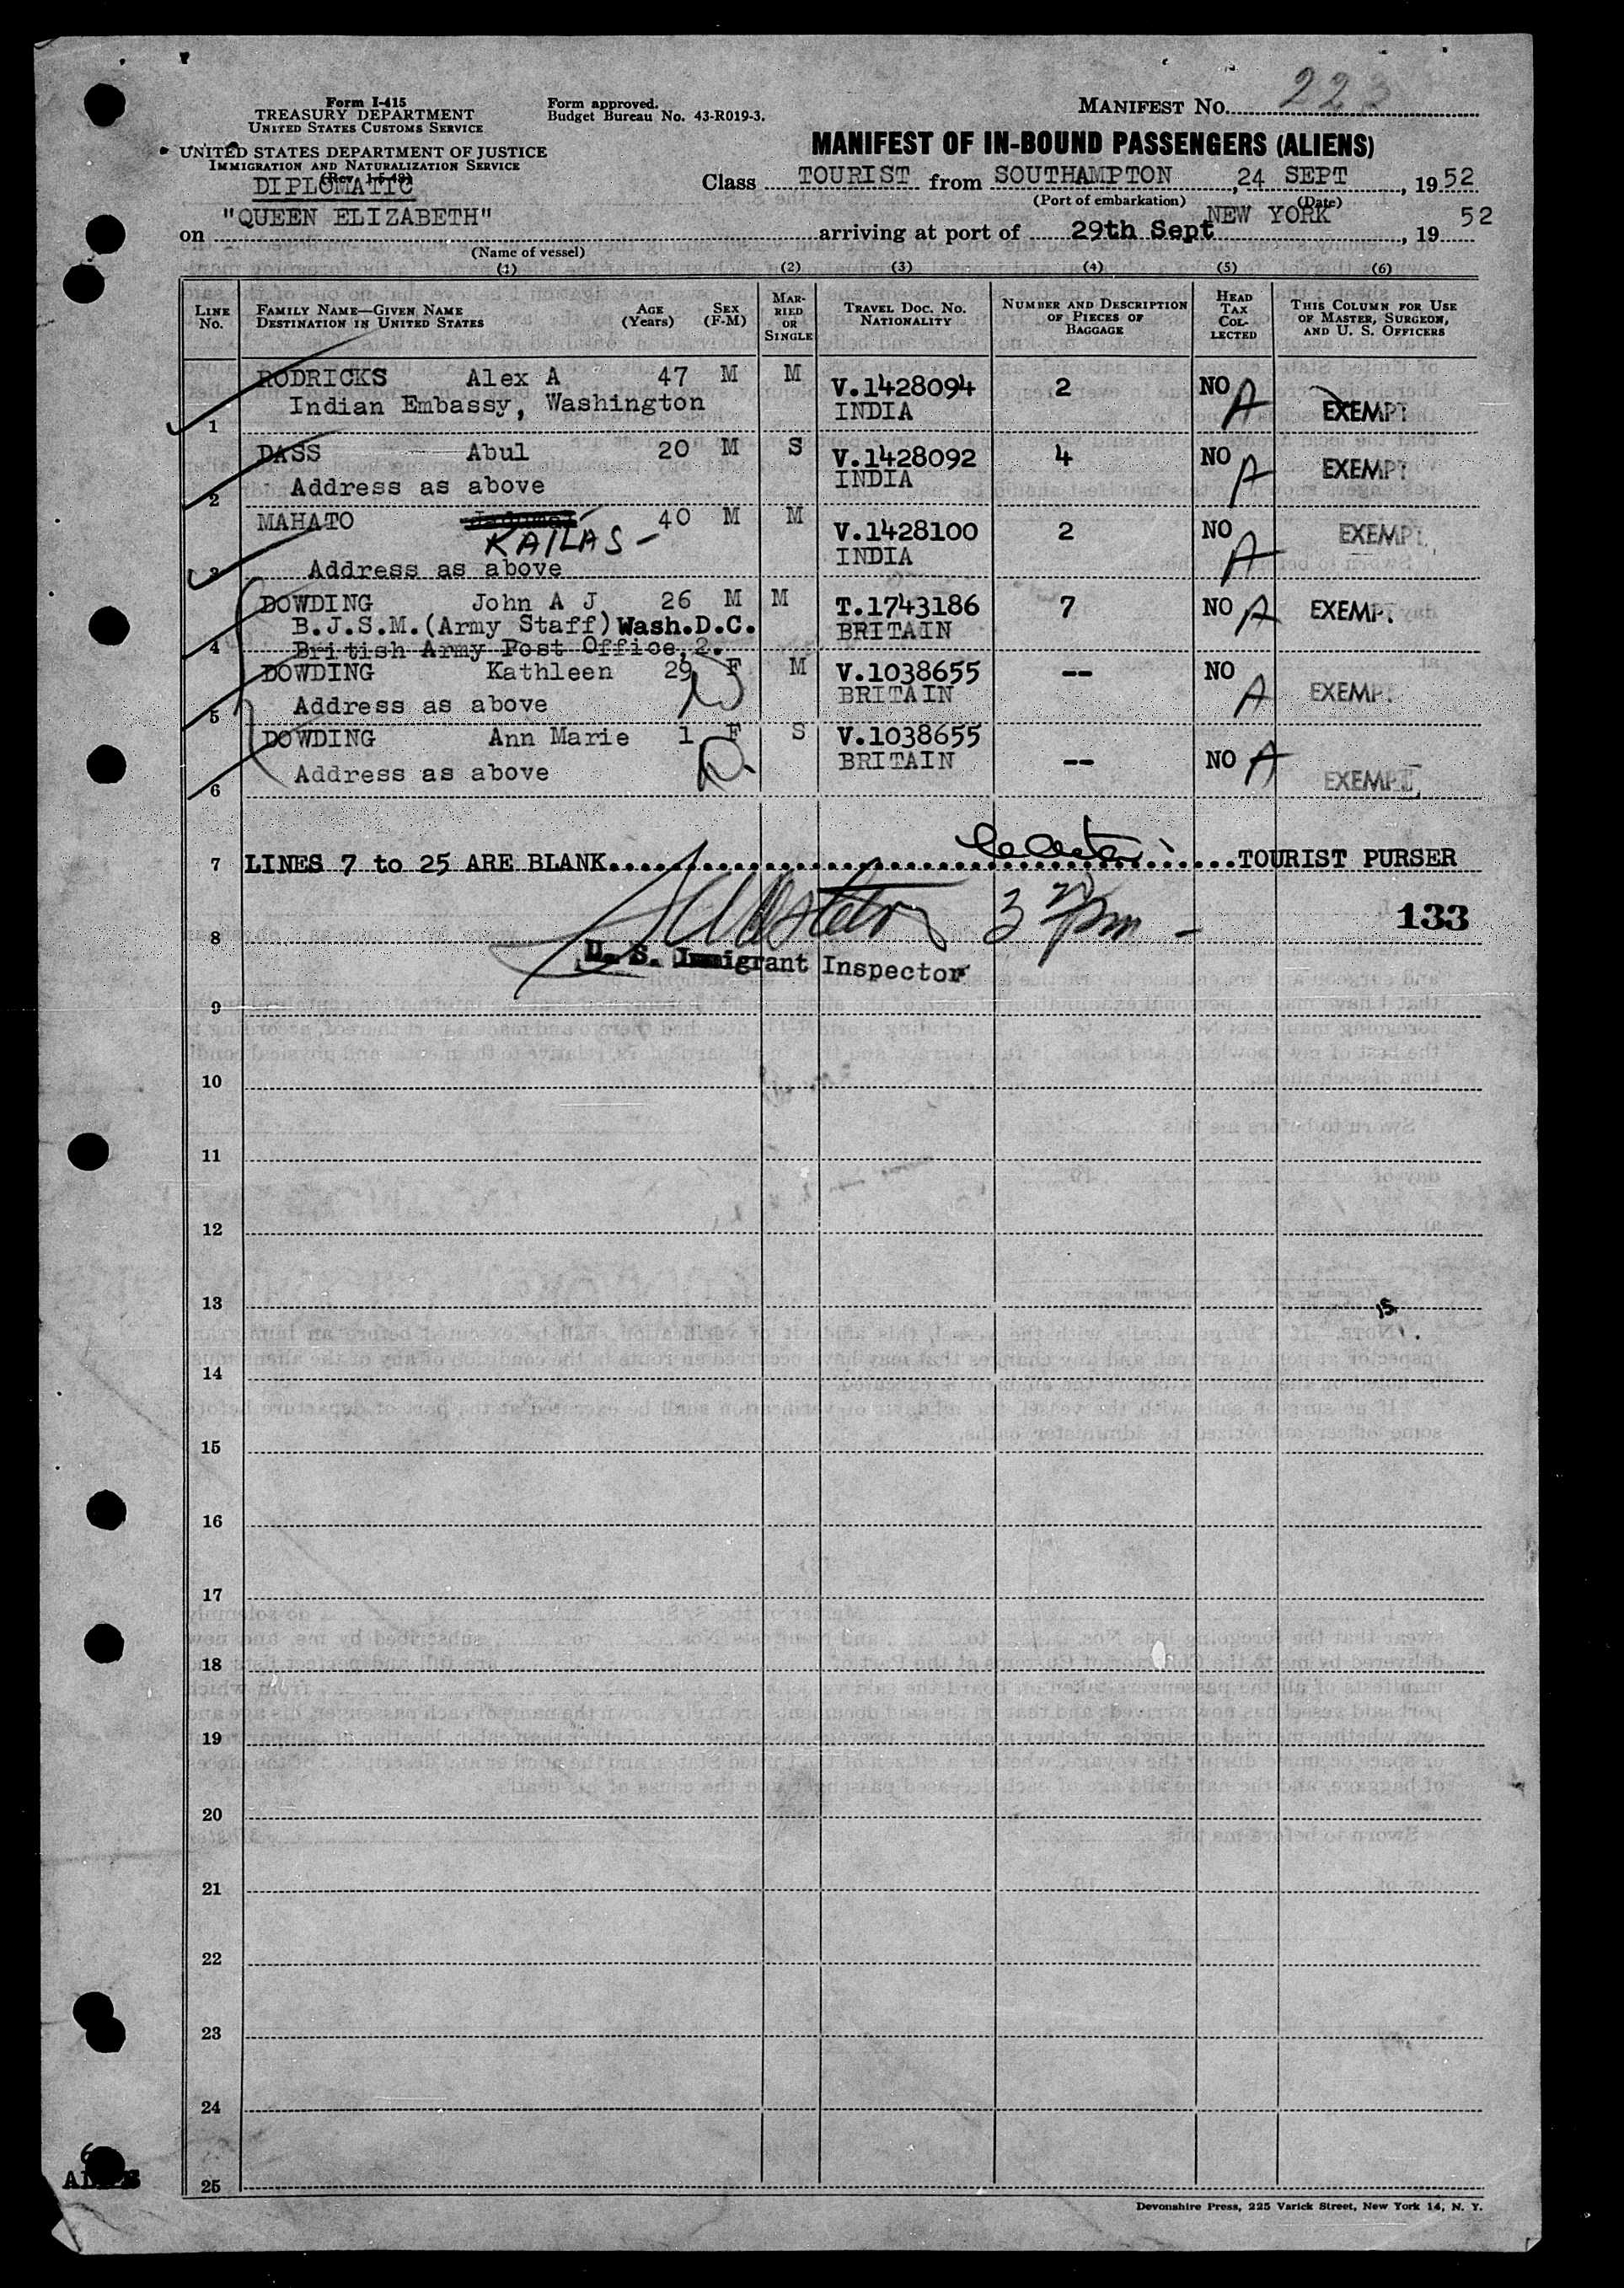 Form I-415
TREASURY DEPARTMENT
UNITED STATES CUSTOMS SERVICE
UNITED STATES DEPARTMENT OF JUSTICE
IMMIGRATION AND NATURALIZATION SERVICE
(Rev. 1-5-48)
DIPLOMATIC
Form approved.
Budget Bureau No. 43-R019-3.
MANIFEST No. 223
MANIFEST OF IN-BOUND PASSENGERS (ALIENS)
Class TOURIST from SOUTHAMPTON, 24 SEPT, 1952
(Port of embarkation) (Date)
on "QUEEN ELIZABETH" arriving at port of NEW YORK 29th Sept, 19 52
(Name of vessel)
(1) (2) (3) (4) (5) (6)
LINE No. FAMILY NAME—GIVEN NAME DESTINATION IN UNITED STATES AGE (Years) SEX (F-M) MARRIED OR SINGLE TRAVEL DOC. NO. NATIONALITY NUMBER AND DESCRIPTION OF PIECES OF BAGGAGE HEAD TAX COLLECTED THIS COLUMN FOR USE OF MASTER, SURGEON, AND U. S. OFFICERS
RODRICKS Alex A 47 M M V.1428094 2 NO A EXEMPT
1 Indian Embassy, Washington INDIA
DASS Abul 20 M S V.1428092 4 NO A EXEMPT
2 Address as above INDIA
MAHATO KAILAS - 40 M M V.1428100 2 NO A EXEMPT
3 Address as above INDIA
DOWDING John A J 26 M M T.1743186 7 NO A EXEMPT
B.J.S.M.(Army Staff) Wash.D.C. BRITAIN
4 British Army Post Office, 2.
DOWDING Kathleen 29 F M V.1038655 -- NO A EXEMPT
5 Address as above BRITAIN
DOWDING Ann Marie 1 F S V.1038655 -- NO A EXEMPT
6 Address as above BRITAIN
7 LINES 7 to 25 ARE BLANK TOURIST PURSER
8 3 pm - 133
U. S. Immigrant Inspector
9
10
11
12
13
14
15
16
17
18
19
20
21
22
23
24
25
Devonshire Press, 225 Varick Street, New York 14, N. Y.